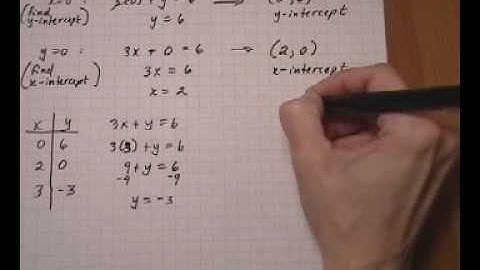 (find
y-intercept)
y = 6
y-intercept
y=0:
3x + 0 = 6
(2, 0)
(find
x-intercept)
3x = 6
x-intercept
x = 2
x y
3x + y = 6
0 6
3(3) + y = 6
2 0
9 + y = 6
-9 -9
3 -3
y = -3